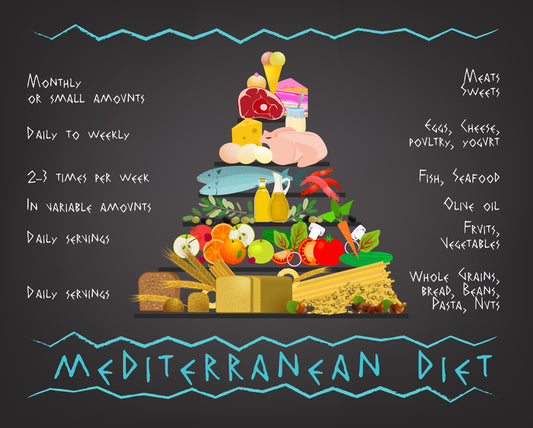 Monthly
or small amounts
Daily to weekly
2-3 times per week
In variable amounts
Daily servings
Daily servings
Meats
Sweets
Eggs, Cheese,
poultry, yogurt
Fish, Seafood
Olive oil
Fruits,
Vegetables
Whole Grains,
bread, Beans,
Pasta, Nuts
Mediterranean Diet